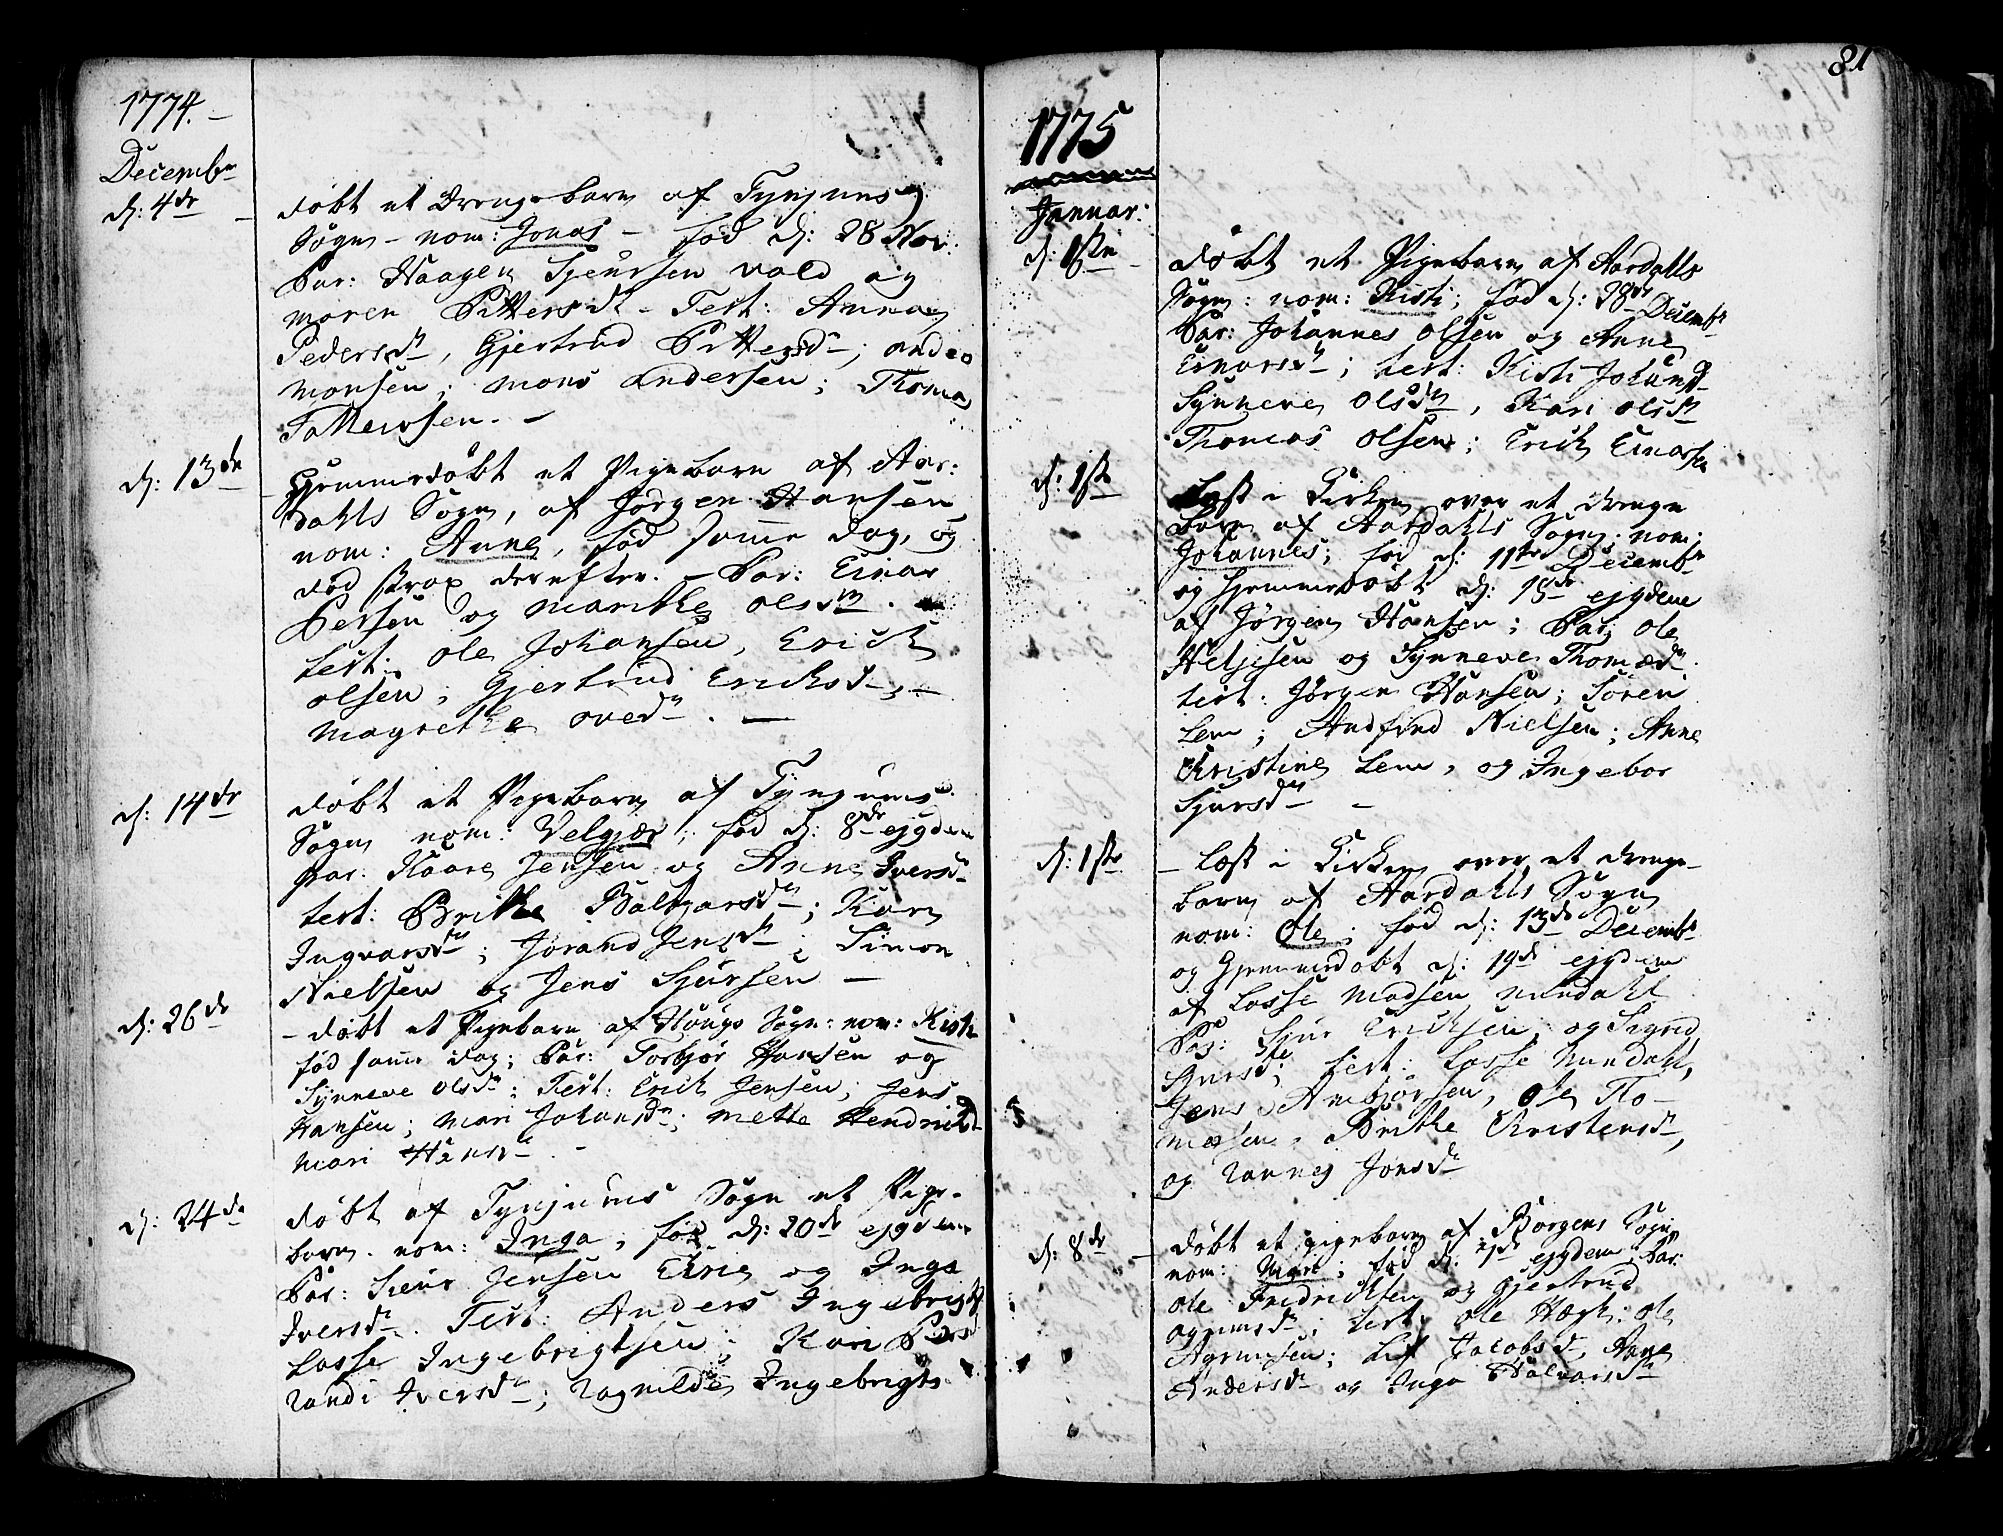 1774.
Decembr
d: 4de
døbt et Drengebarn af Tynjums
Sogn - nom: Jonas - fød d: 28 Nov:
Par: Haagen Sjeursen vold og
Maren Pittersdr - Test: Anna
Pedersdr, Gjertrud Pittersdr; Anders
Monsen; Mons Andersen; Thomas
Tollewsen. -
d: 13de
Hjemmedøbt et Pigebarn af Aar:
dahls Sogn, af Jørgen Hansen
nom: Anne, fød samme dag, og
død strax derefter. - Par: Einar
Persen og Marithe Olsdr.
test: Ole Johansen, Erich
Olsen, Gjertrud Ericksdr, -
Magrethe Ovedr. -
d: 14de
døbt et Pigebarn af Tynjums
Sogn nom: Velgjær, fød d: 8de ejusdem
par: Kaare Jensen og Anne Iversdr
test: Brithe Baltzarsdr; Kari
Ingvarsdr; Jorand Jensdr; Simon
Nielsen og Jens Sjursen -
d: 26de
- døbt et Pigebarn af Haugs Sogn: nom: Kisti
fød samme dag; Par: Torbjør Hansen og
Synneve Olsdr; Test: Erich Jensen; Jens
Hansen; Mari Johansdr; Mette Hendrichsdr
Mari Hansdr. -
d: 24de
døbt af Tynjums Sogn et Pige-
barn. nom: Inga, fød d: 20de ejusdem
Par: Sjeur Jensen Eine og Inga
Iversdr. Test: Anders Ingebrigts
Lasse Ingebrigtsen; Kari Persdr
Randi Iversdr; Ragnilde Ingebrigts
81
1775
Januar:
d: 1ste
døbt et Pigebarn af Aardalls
Sogn: nom: Kisti; fød d: 28de Decembr
Par: Johannes Olsen og Anne
Einarsdr; test: Kisti Johansd
Synneve Olsdr, Kari Olsdr
Thomas Olsen; Erich Einarsen
d: 1ste
Læst i Kirken over et drenge
barn af Aardahls Sogn: nom:
Johannes; fød d: 11te Decembr
og hjemmedøbt d: 15de ejusdem
af Jørgen Hansen; Par: Ole
Helgesen og Synneve Thomædr.
test: Jørgen Hansen; Søren
Lem; Andfind Nielsen; Anne
Christine Lem, og Ingebor
Sjursdr -
d: 1ste
- Læst i Kirken over et drenge-
barn af Aardahls Sogn
nom: Ole; fød d: 13de Decembr
og hjemmedøbt d: 19de ejusdem
af Lasse Madsen Nundahl
Par: Sjur Erichsen og Sigrid
Sjursd; test: Lasse Nundahl,
Jens Ambjørsen, Ole To-
mæsen, Brithe Christensdr,
og Rannej Jonsdr
d: 8de
- døbt et pigebarn af Borgens Sogn
nom: Mari; fød d: 1ste ejusdem Par:
Ole Fredrichsen og Gjertrud
Ogmunsdr; test: Ole Hægh: Ole
Agmunsen; Lisbet Jacobsd, Anne
Andersdr og Inga Halvarsdr